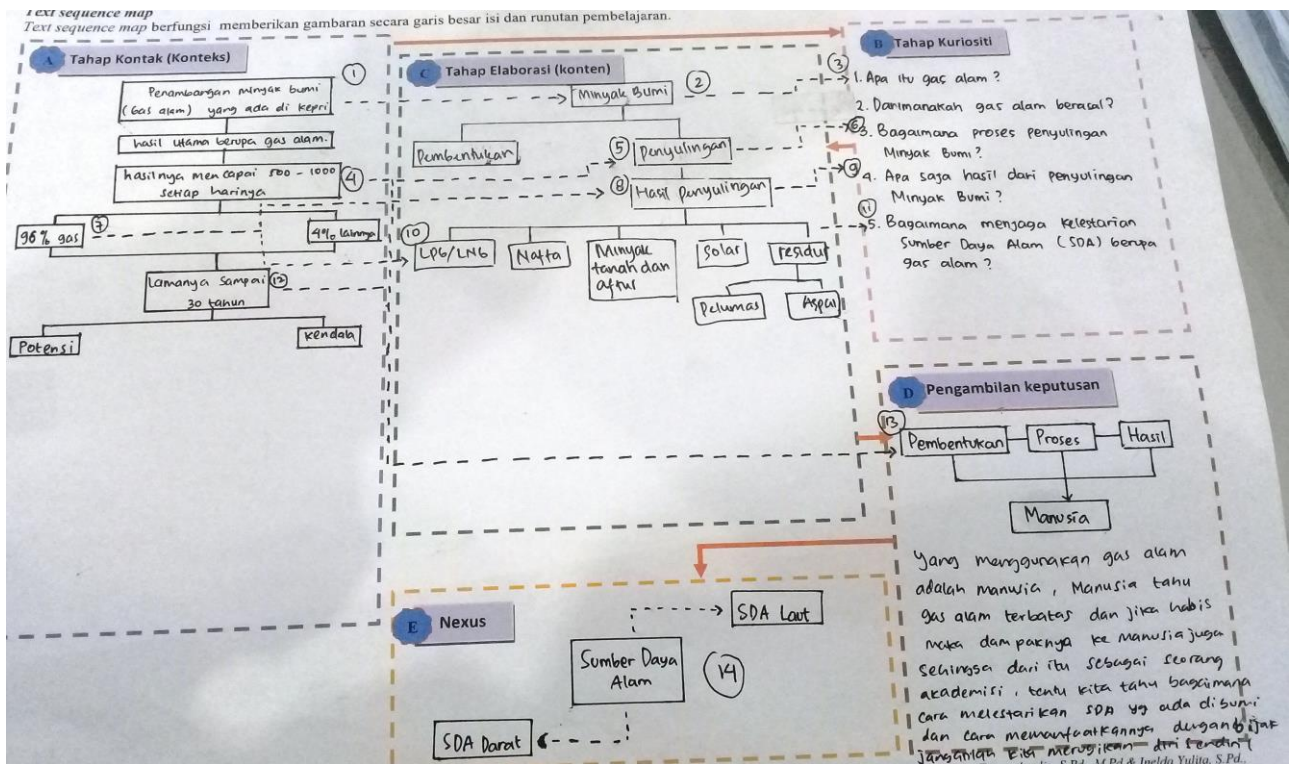 Text sequence map
Text sequence map berfungsi memberikan gambaran secara garis besar isi dan runutan pembelajaran.
A Tahap Kontak (Konteks)
1
Penambangan minyak bumi
(Gas alam) yang ada di kepri
hasil utama berupa gas alam.
hasilnya mencapai 500 - 1000
setiap harinya
4
96% gas
7
4% lainnya
Lamanya sampai
30 tahun
12
Potensi
kendala
C Tahap Elaborasi (konten)
Minyak Bumi
2
Pembentukan
5
Penyulingan
8
Hasil Penyulingan
10
LPG/LNG
Nafta
Minyak
tanah dan
aftur
Solar
residu
Pelumas
Aspal
B Tahap Kuriositi
3
1. Apa itu gas alam ?
2. Darimanakah gas alam berasal?
6
3. Bagaimana proses penyulingan
Minyak Bumi ?
9
4. Apa saja hasil dari penyulingan
Minyak Bumi ?
11
5. Bagaimana menjaga kelestarian
Sumber Daya Alam (SDA) berupa
gas alam ?
D Pengambilan keputusan
13
Pembentukan
Proses
Hasil
Manusia
Yang menggunakan gas alam
adalah manusia, Manusia tahu
gas alam terbatas dan jika habis
maka dampaknya ke manusia juga
sehingga dari itu sebagai seorang
akademisi, tentu kita tahu bagaimana
cara melestarikan SDA yg ada di bumi
dan cara memanfaatkannya dengan bijak
janganlah kita merugikan diri sendiri
S.Pd., M.Pd & Inelda Yulita, S.Pd.,
E Nexus
SDA Laut
Sumber Daya
Alam
14
SDA Darat